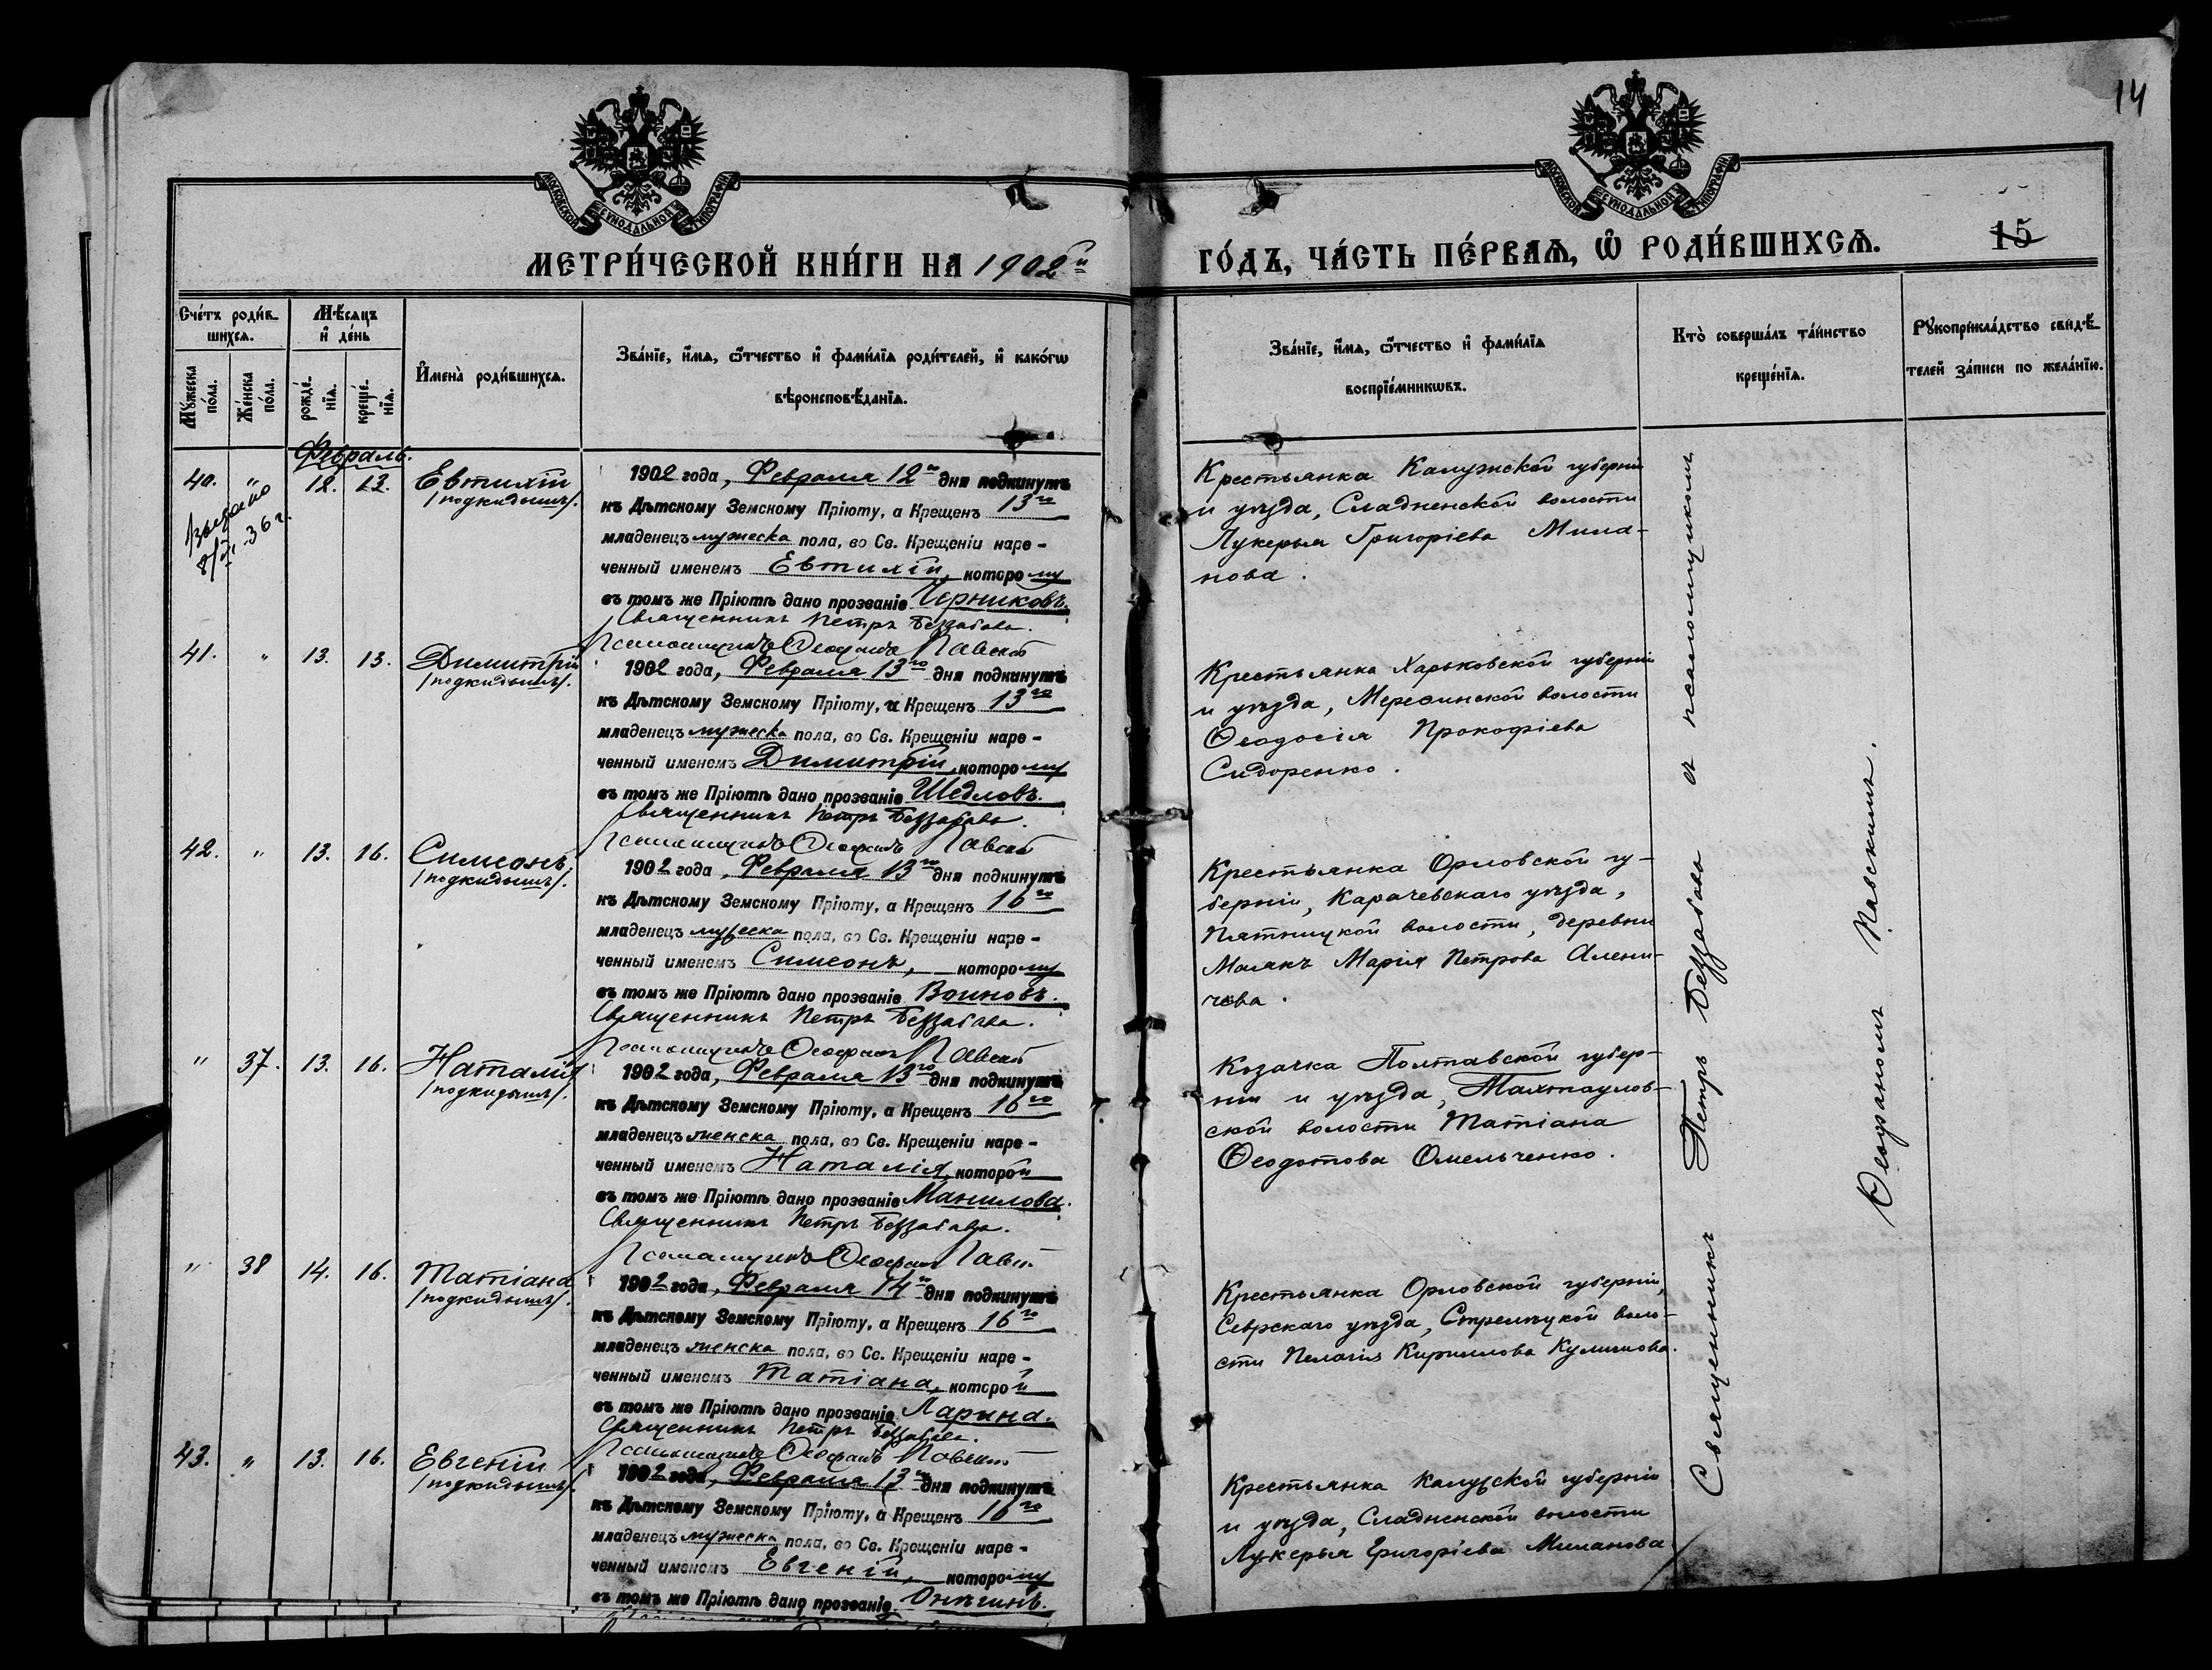 14
МОСКОВСКОЙ СѴНОДАЛЬНОЙ ТИПОГРАФІИ
МОСКОВСКОЙ СѴНОДАЛЬНОЙ ТИПОГРАФІИ
МЕТРИ́ЧЕСКОЙ КНИ́ГИ НА 1902й
ГО́ДЪ, ЧА́СТЬ ПЕ́РВАѦ, Ѡ҆ РОДИ́ВШИХСѦ.
15
Сче́тъ роди́в-
шихсѧ.
Мꙋ́жеска по́ла.
Же́нска по́ла.
Мѣ́сѧцъ
и҆ де́нь
рожде́-
нїѧ.
креще́-
нїѧ.
И҆мена̀ роди́вшихсѧ.
Зва́нїе, и҆́мѧ, ѻ҆́тчество и҆ фами́лїѧ роди́телей, и҆ како́гѡ
вѣроисповѣ́данїѧ.
Зва́нїе, и҆́мѧ, ѻ҆́тчество и҆ фами́лїѧ
воспрїе́мникѡвъ.
Кто̀ соверша́лъ та́инство
креще́нїѧ.
Рꙋкоприкла́дство свидѣ́-
телей за́писи по жела́нїю.
Февраль.
40. " 12. 13. Евтихій
/подкидышъ/.
Выдано
36 г.
1902 года, Февраля 12го дня подкинутъ
къ Дѣтскому Земскому Пріюту, а Крещенъ 13го
младенецъ мужеска пола, во Св. Крещеніи наре-
ченный именемъ Евтихій, которому
въ томъ же Пріютѣ дано прозваніе Черниковъ.
Священникъ Петръ Беззабава.
Псаломщикъ Ѳеофанъ Павскій
Крестьянка Калужской губерніи
и уѣзда, Сладненской волости
Лукерья Григоріева Мила-
нова.
41. " 13. 13. Димитрій
/подкидышъ/.
1902 года, Февраля 13го дня подкинутъ
къ Дѣтскому Земскому Пріюту, и Крещенъ 13го
младенецъ мужеска пола, во Св. Крещеніи наре-
ченный именемъ Димитрій, которому
въ томъ же Пріютѣ дано прозваніе Шедловъ.
Священникъ Петръ Беззабава.
Псаломщикъ Ѳеофанъ Павскій
Крестьянка Харьковской губерніи
и уѣзда, Мерефинской волости
Ѳеодосія Прокофіева
Сидоренко.
42. " 13. 16. Симеонъ
/подкидышъ/.
1902 года, Февраля 13го дня подкинутъ
къ Дѣтскому Земскому Пріюту, а Крещенъ 16го
младенецъ мужеска пола, во Св. Крещеніи наре-
ченный именемъ Симеонъ, которому
въ томъ же Пріютѣ дано прозваніе Воиновъ.
Священникъ Петръ Беззабава.
Псаломщикъ Ѳеофанъ Павскій
Крестьянка Орловской гу-
берніи, Карачевскаго уѣзда,
Пятницкой волости, деревни
Марія Петрова Алени-
чева.
" 37. 13. 16. Наталія
/подкидышъ/.
1902 года, Февраля 13го дня подкинутъ
къ Дѣтскому Земскому Пріюту, а Крещенъ 16го
младенецъ женска пола, во Св. Крещеніи наре-
ченный именемъ Наталія, которой
въ томъ же Пріютѣ дано прозваніе Манилова.
Священникъ Петръ Беззабава.
Псаломщикъ Ѳеофанъ Павскій
Козачка Полтавской губер-
ніи и уѣзда, Тахтаулов-
ской волости Татіана
Ѳеодотова Омельченко.
" 38 14. 16. Татіана
/подкидышъ/.
1902 года, Февраля 14го дня подкинутъ
къ Дѣтскому Земскому Пріюту, а Крещенъ 16го
младенецъ женска пола, во Св. Крещеніи наре-
ченный именемъ Татіана, которой
въ томъ же Пріютѣ дано прозваніе Ларина.
Священникъ Петръ Беззабава.
Псаломщикъ Ѳеофанъ Павскій
Крестьянка Орловской губерніи,
Севрскаго уѣзда, Стрелецкой воло-
сти Пелагія Кириллова Куличкова.
43. " 13. 16. Евгеній
/подкидышъ/.
1902 года, Февраля 13го дня подкинутъ
къ Дѣтскому Земскому Пріюту, а Крещенъ 16го
младенецъ мужеска пола, во Св. Крещеніи наре-
ченный именемъ Евгеній, которому
въ томъ же Пріютѣ дано прозваніе Онѣгинъ.
Крестьянка Калужской губерніи
и уѣзда, Сладненской волости
Лукерья Григоріева Миланова
Священникъ Петръ Беззабава съ псаломщикомъ
Ѳеофаномъ Павскимъ.